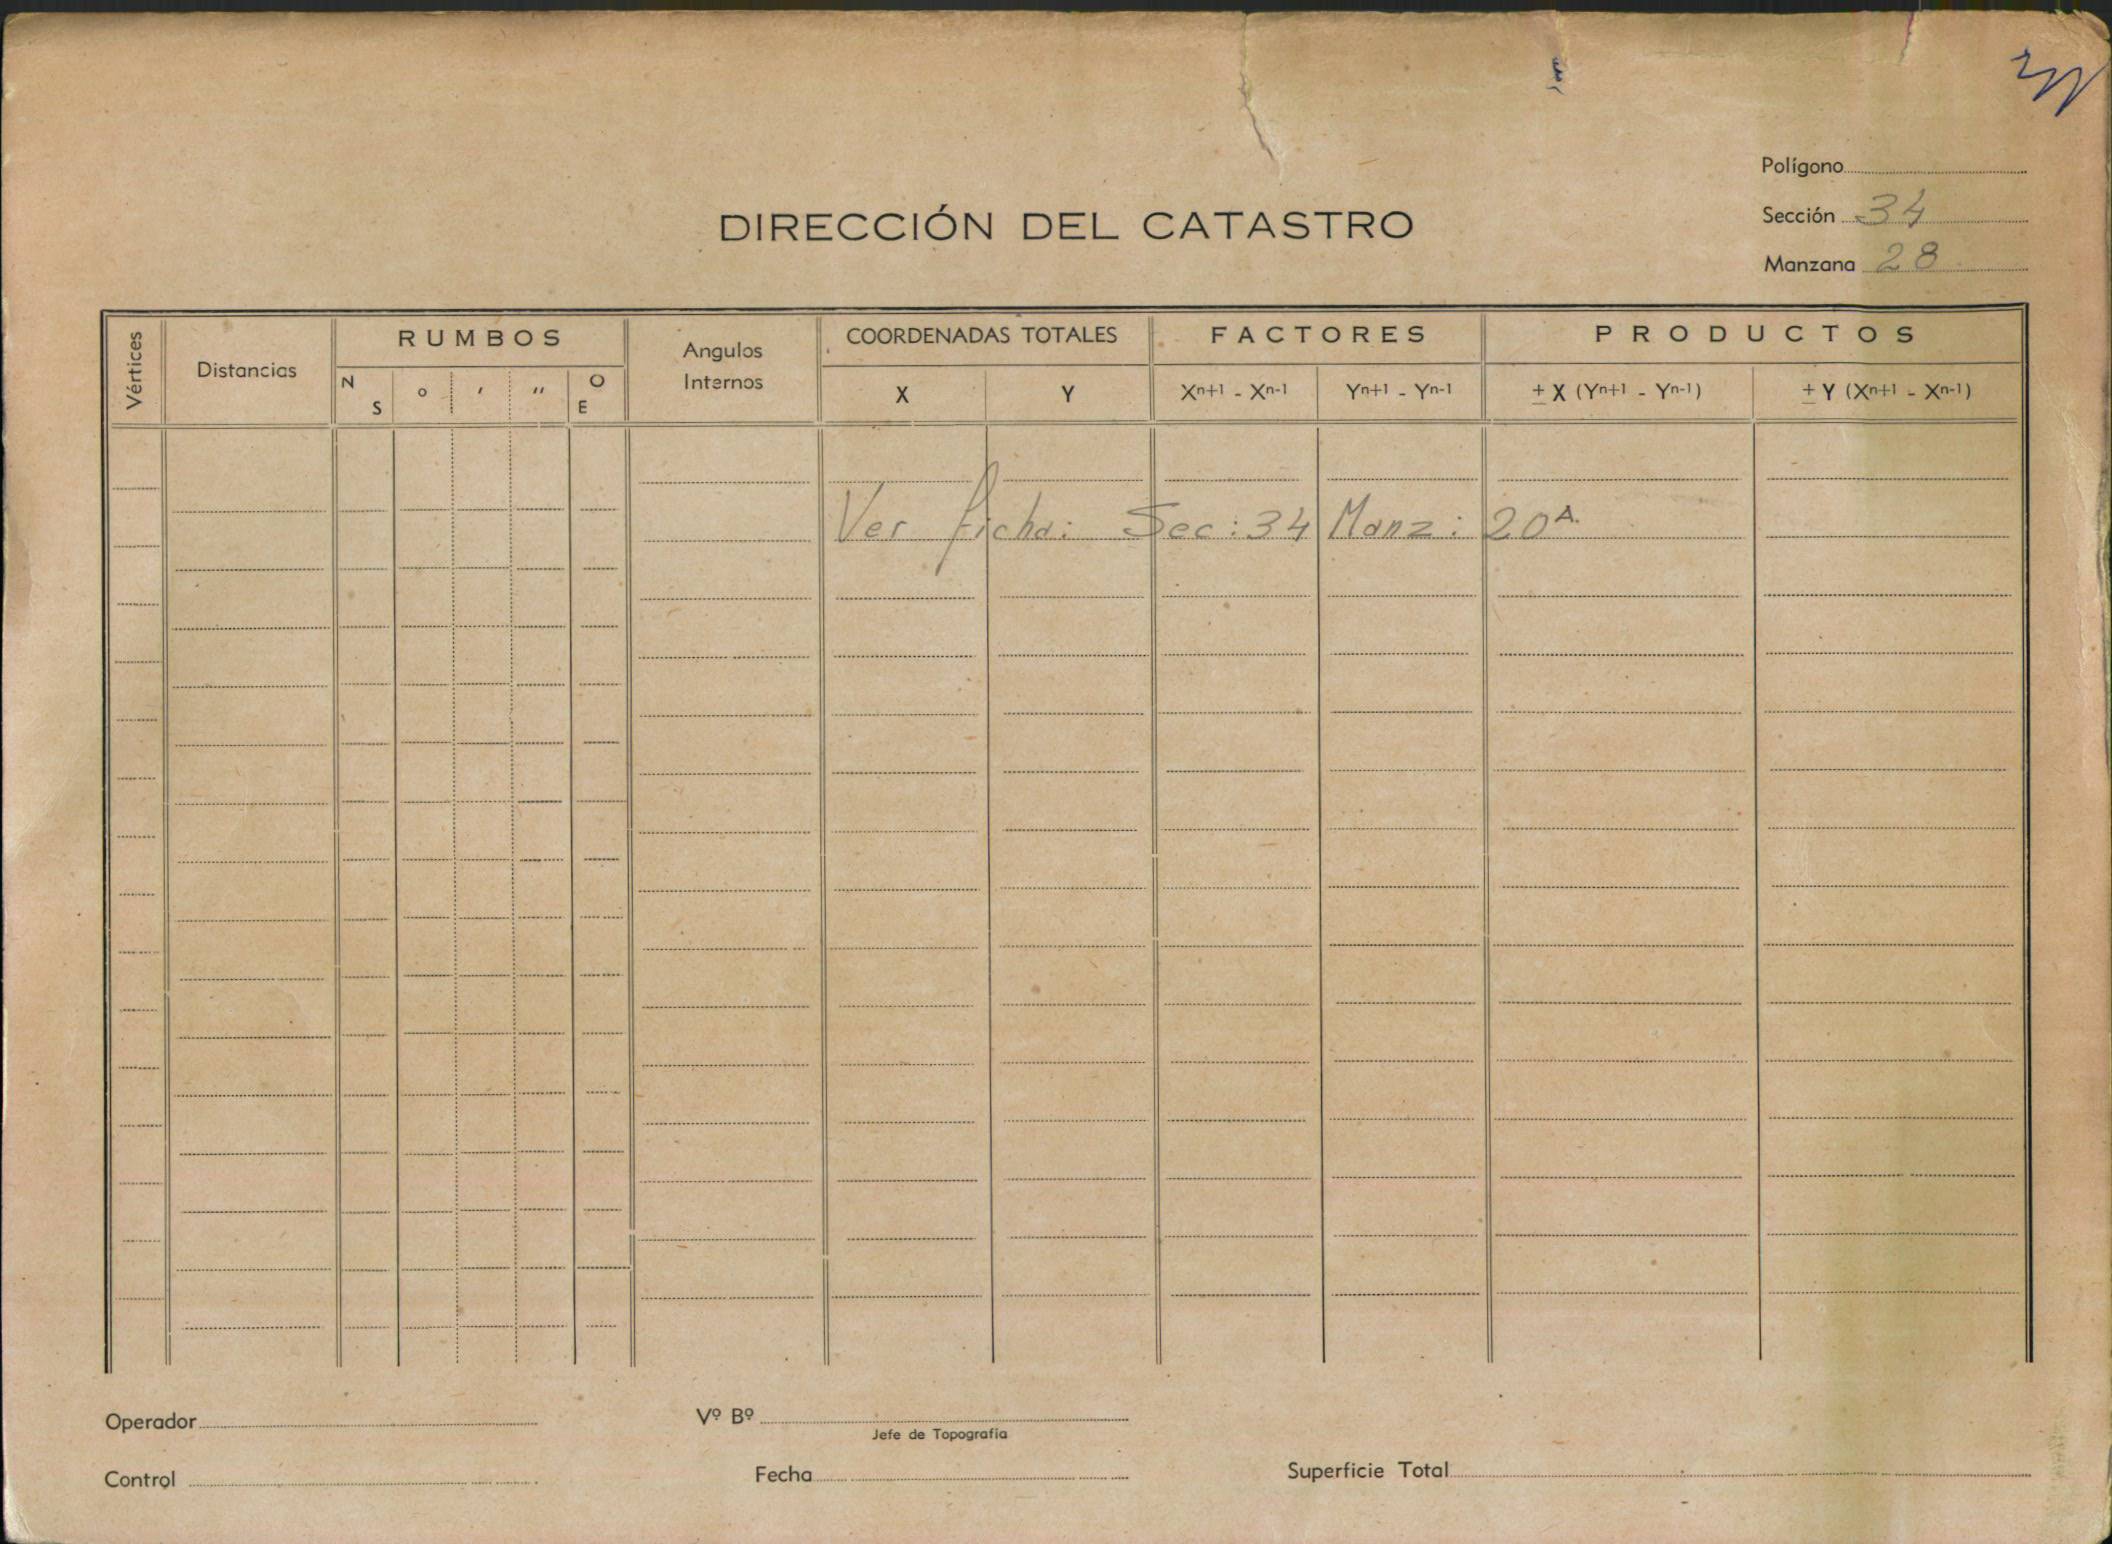 Polígono
DIRECCIÓN DEL CATASTRO
Sección 34
Manzana 28
Vértices
Distancias
RUMBOS
N S ° ′ ″ O E
Angulos Internos
COORDENADAS TOTALES
X Y
FACTORES
Xn+1 - Xn-1 Yn+1 - Yn-1
PRODUCTOS
± X (Yn+1 - Yn-1) ± Y (Xn+1 - Xn-1)
Ver ficha: Sec: 34 Manz: 20A.
Operador
Vº Bº
Jefe de Topografía
Control
Fecha
Superficie Total